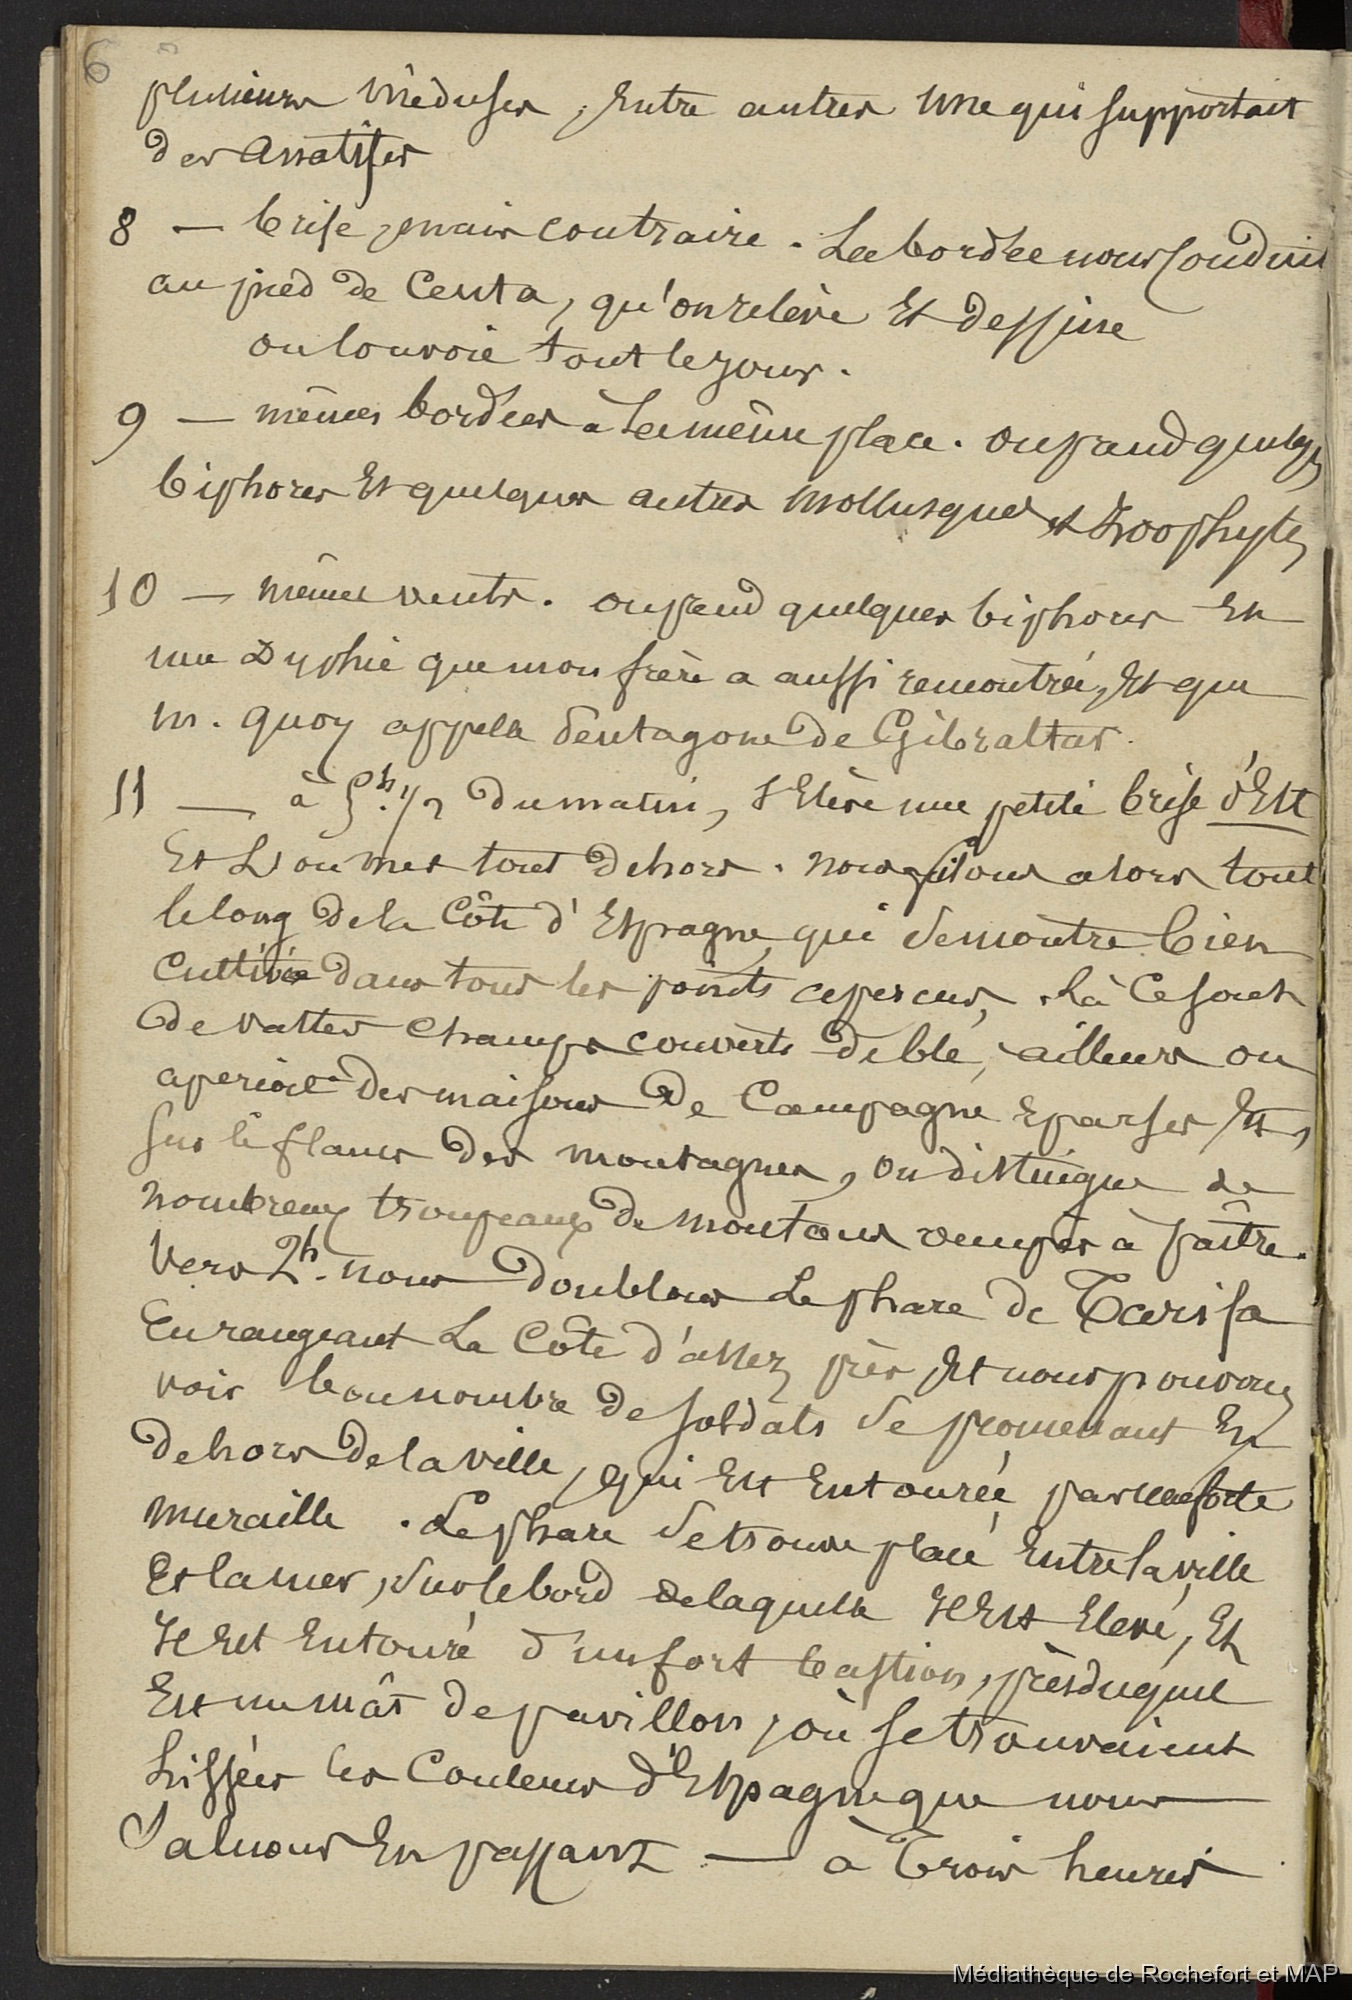 6
plusieurs méduses, Entre autres Une qui supportait
des Anatifes
8 — brise, mais contraire. La bordée nous conduit
au pied de Ceuta, qu'on relève Et dessine
on louvoie tout le jour.
9 — mêmes bordées à La même place. on prend quelqs
biphores Et quelques autres Mollusques et Zoophytes
10 — même vents. on prend quelques biphores Et
une Dyphie que mon frère a aussi remontrée, Et que
M. Quoy appelle Pentagone de Gibraltar.
11 — à 5h. 1/2 du matin, s'Elève une petite brise d'Est
Et L'on met tout dehors. nous filons alors tout
le long de la Côte d'Espagne, qui se montre bien
Cultivée dans tous les points aperçus, Là Ce sont
de vastes champs couverts de blé, ailleurs on
aperçoit des maisons de Campagne Eparses, Et,
sur le flanc des montagnes, on distingue de
nombreux troupeaux de moutons occupés à paître.
Vers 2h. nous doublons Le phare de Tarifa
En rangeant La Côte d'assez près Et nous pouvons
voir bon nombre de soldats se promenant En
dehors de la ville, qui Est Entourée par une forte
muraille. Le phare se trouve placé Entre la ville
Et la mer, sur le bord de laquelle Il Est Elevé, Et
Il Est Entouré d'un fort bastion, près duquel
Est un mât de pavillon, où se trouvaient
hissées les Couleurs d'Espagne que nous
Saluons En passant — à Trois heures
Médiathèque de Rochefort et MAP